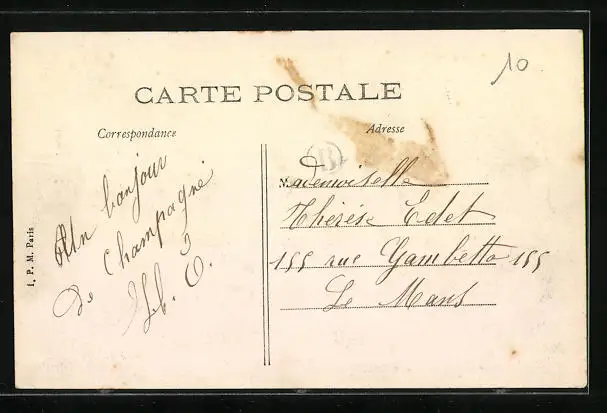 10
CARTE POSTALE
Correspondance
Adresse
Un bonjour
de Champagné
B
Mademoiselle
Thérèse Edet
155 rue Gambetta 155
Le Mans
I. P. M. Paris